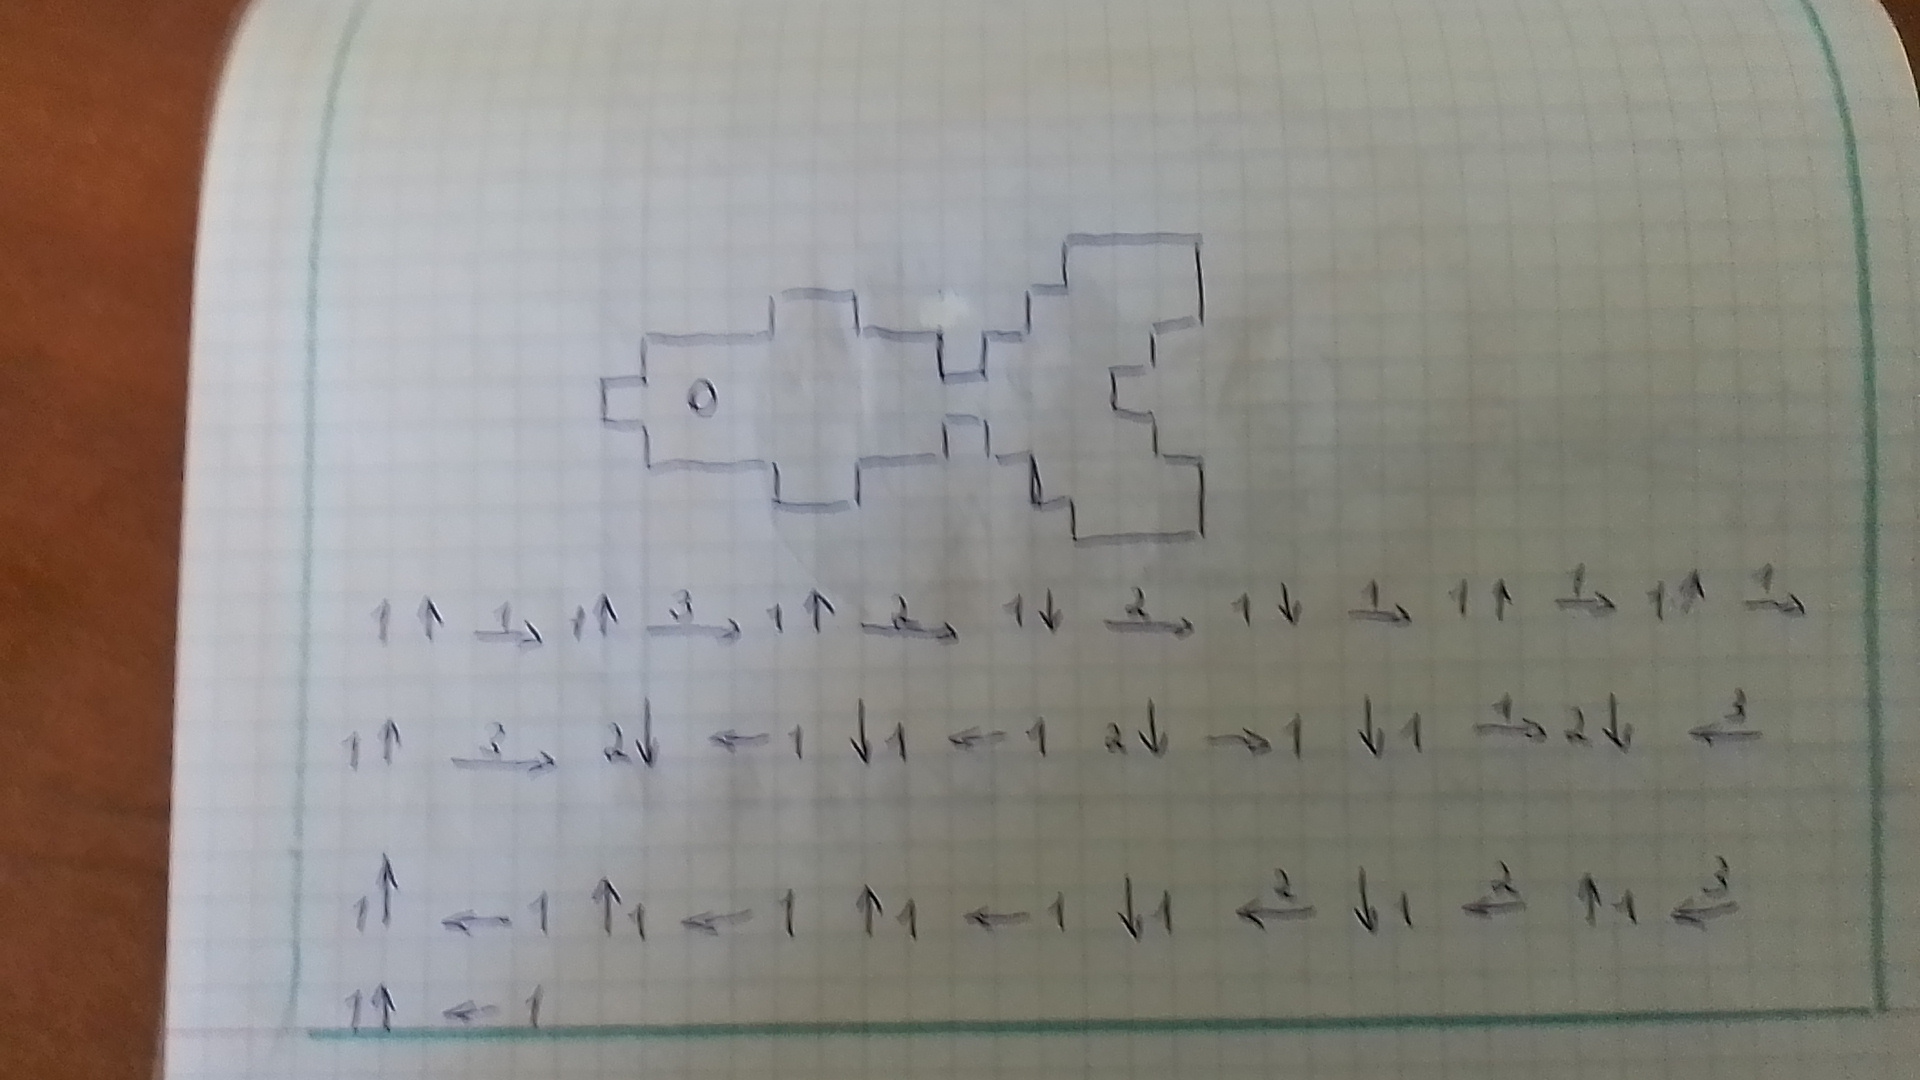 1↑ 1→ 1↑ 3→ 1↑ 2→ 1↓ 2→ 1↓ 1→ 1↑ 1→ 1↑ 1→
1↑ 3→ 2↓ ←1 ↓1 ←1 2↓ →1 ↓1 1→ 2↓ 3←
1↑ ←1 ↑1 ←1 ↑1 ←1 ↓1 2← ↓1 2← ↑1 3←
1↑ ←1